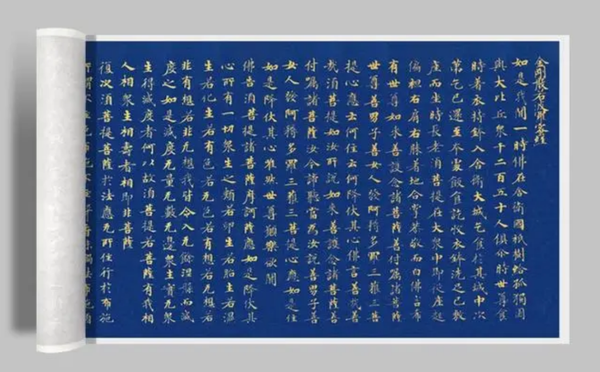 金剛般若波羅蜜經
如是我聞一時佛在舍衛國祇樹給孤獨園
與大比丘眾千二百五十人俱尒時世尊食
時着衣持鉢入舍衛大城乞食於其城中次
第乞已還至本處飯食訖收衣鉢洗足已敷
座而坐時長老湏菩提在大眾中即從座起
偏袒右肩右膝著地合掌恭敬而白佛言希
有世尊如來善護念諸菩薩善付囑諸菩薩
世尊善男子善女人發阿耨多羅三藐三菩
提心應云何住云何降伏其心佛言善哉善
哉湏菩提如汝所說如來善護念諸菩薩善
付囑諸菩薩汝今諦聽當為汝說善男子善
女人發阿耨多羅三藐三菩提心應如是住
如是降伏其心唯然世尊願樂欲聞
佛告湏菩提諸菩薩摩訶薩應如是降伏其
心所有一切眾生之類若卵生若胎生若濕
生若化生若有色若无色若有想若无想若
非有想非无想我皆令入无餘涅槃而滅
度之如是滅度无量无數无邊眾生實无眾
生得滅度者何以故湏菩提若菩薩有我相
人相眾生相壽者相即非菩薩
復次湏菩提菩薩於法應无所住行於布施